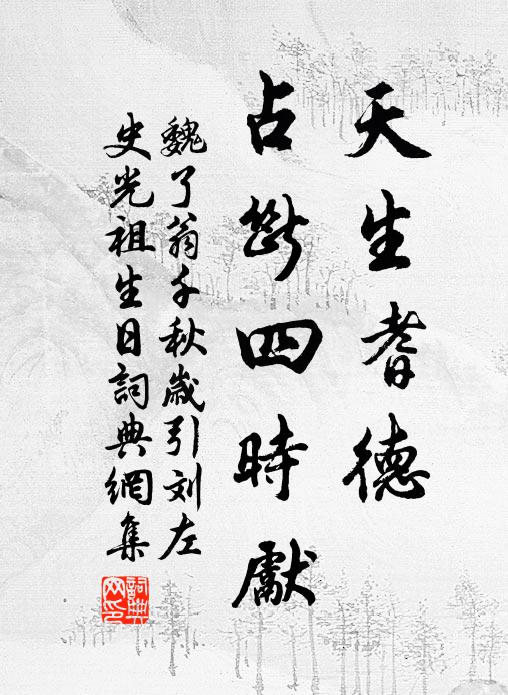 天生耆德
占断四時獻
魏了翁千秋歲引刘左
史光祖生日詞典網集
詞典網印